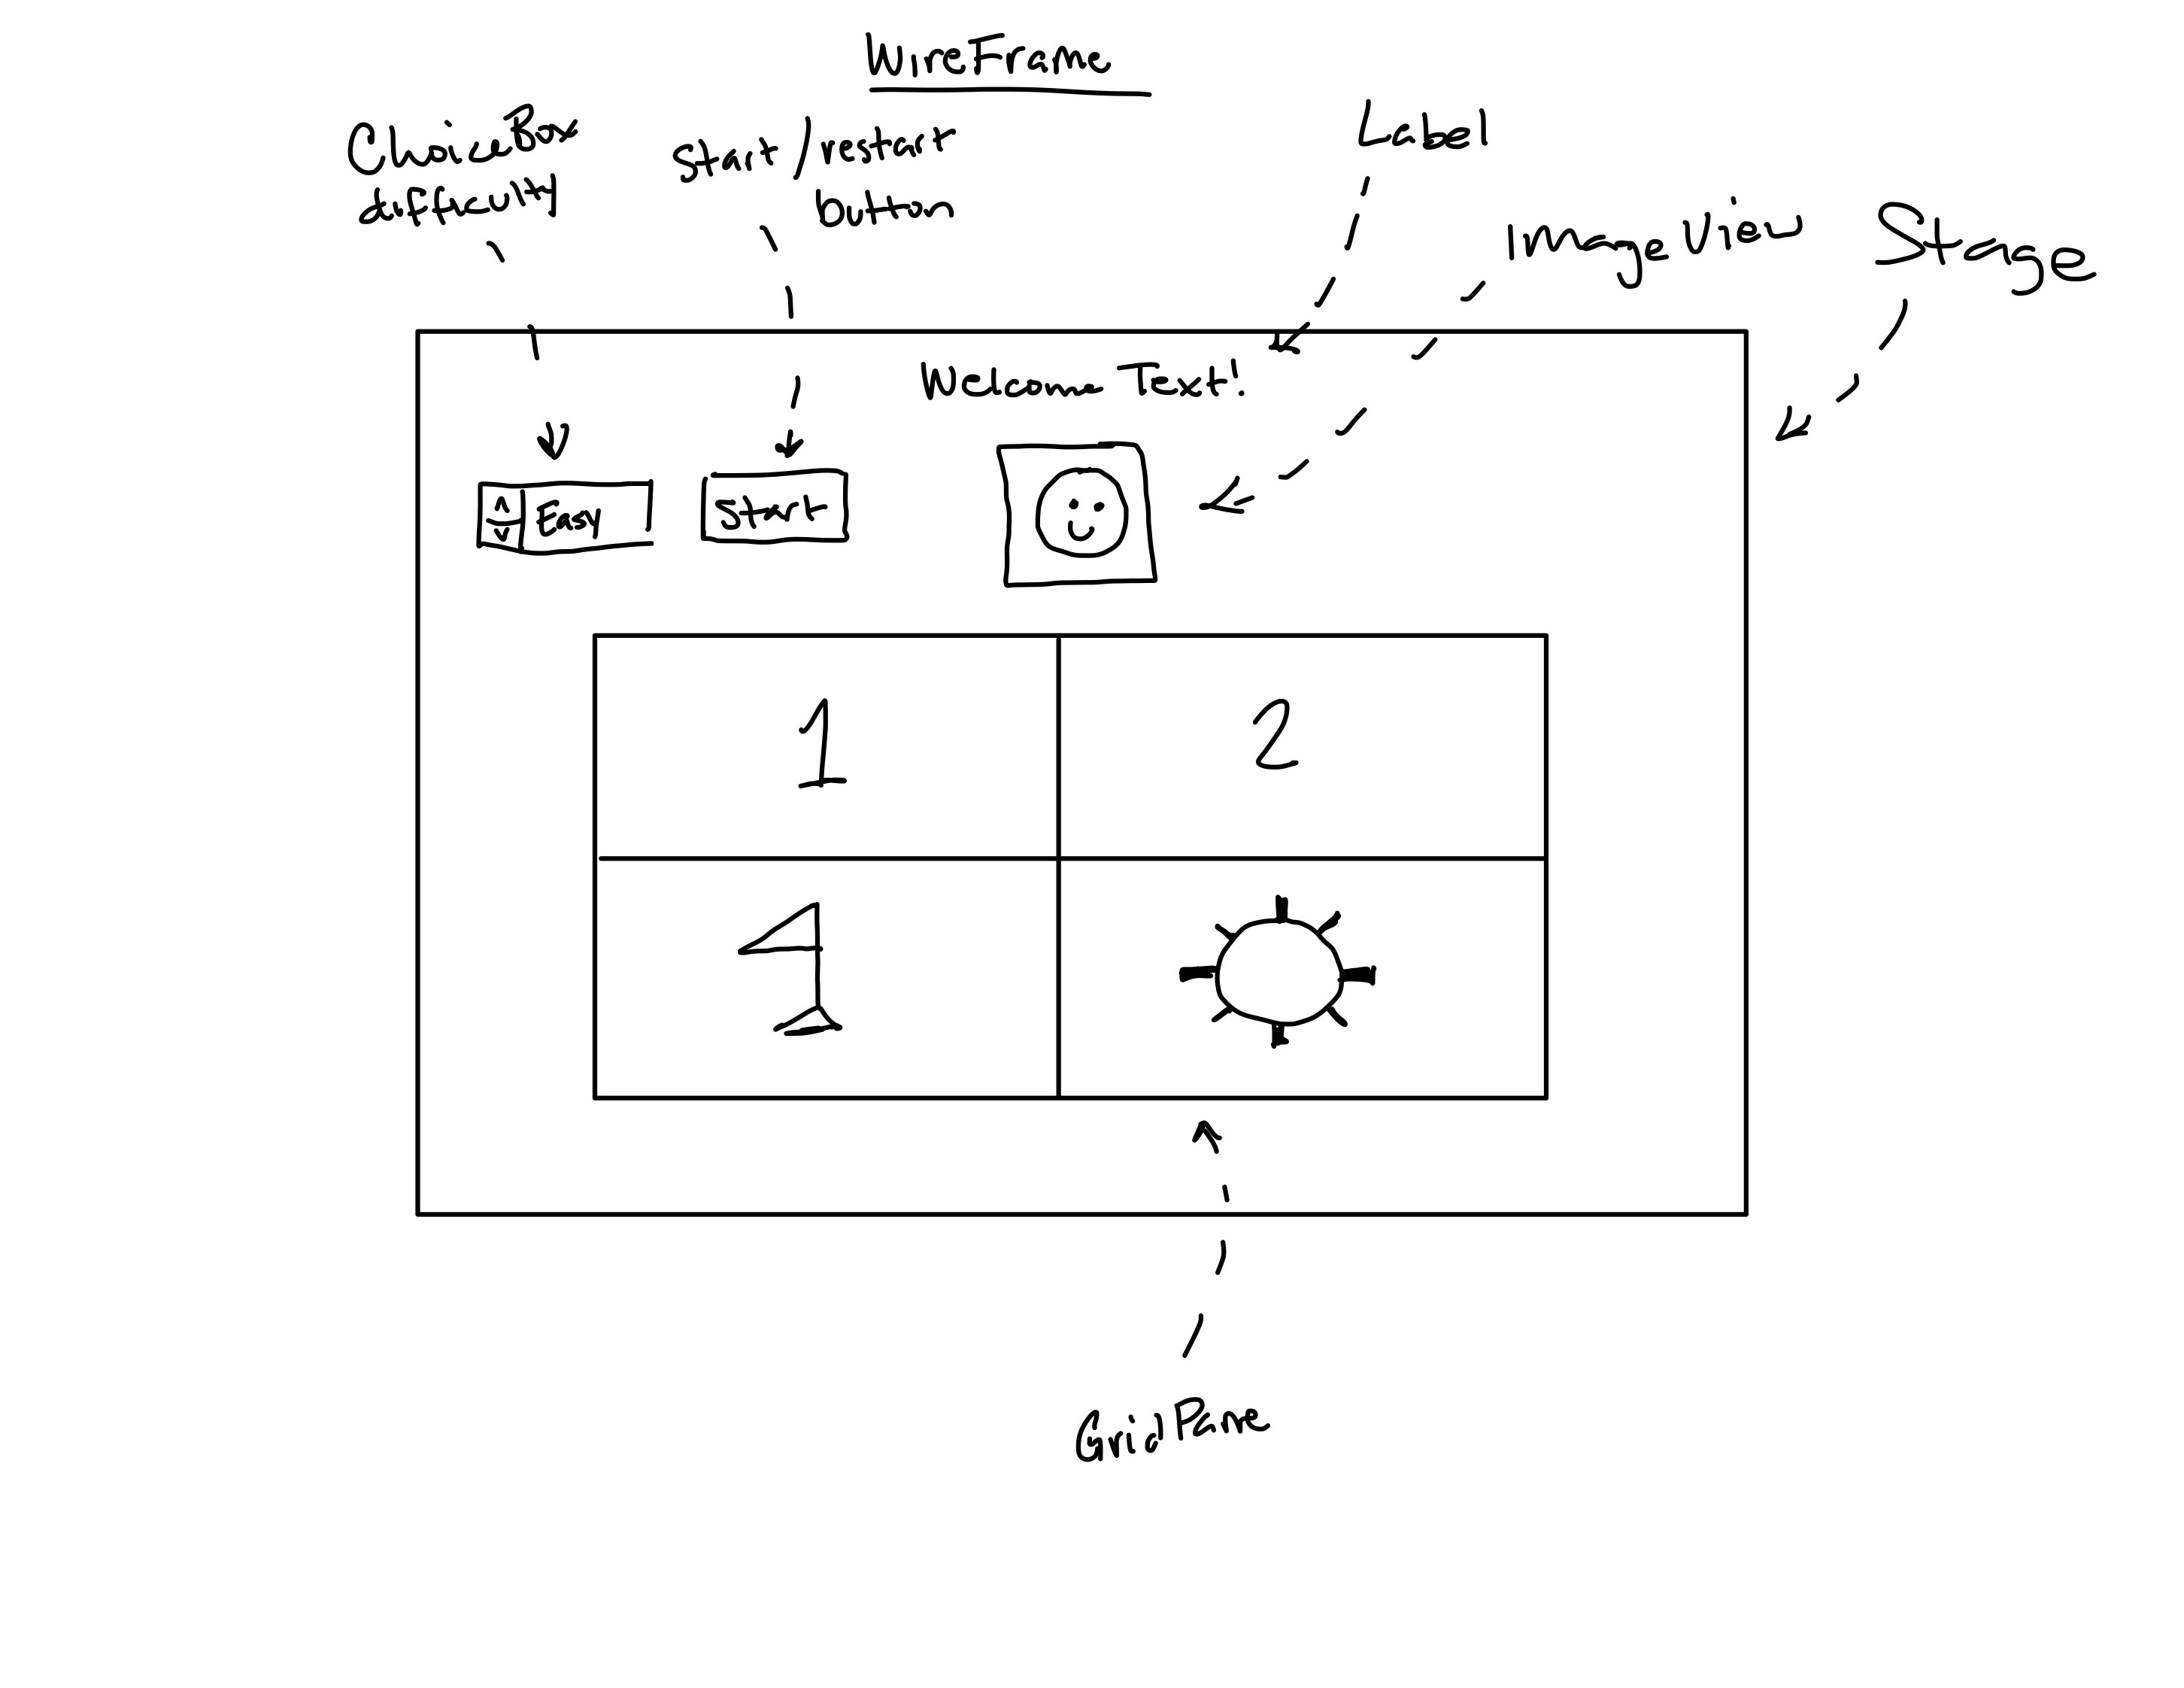 WireFrame
ChoiceBox
difficulty
start/restart
button
Label
ImageView
Stage
Welcome Text!
Easy
Start
1
2
GridPane